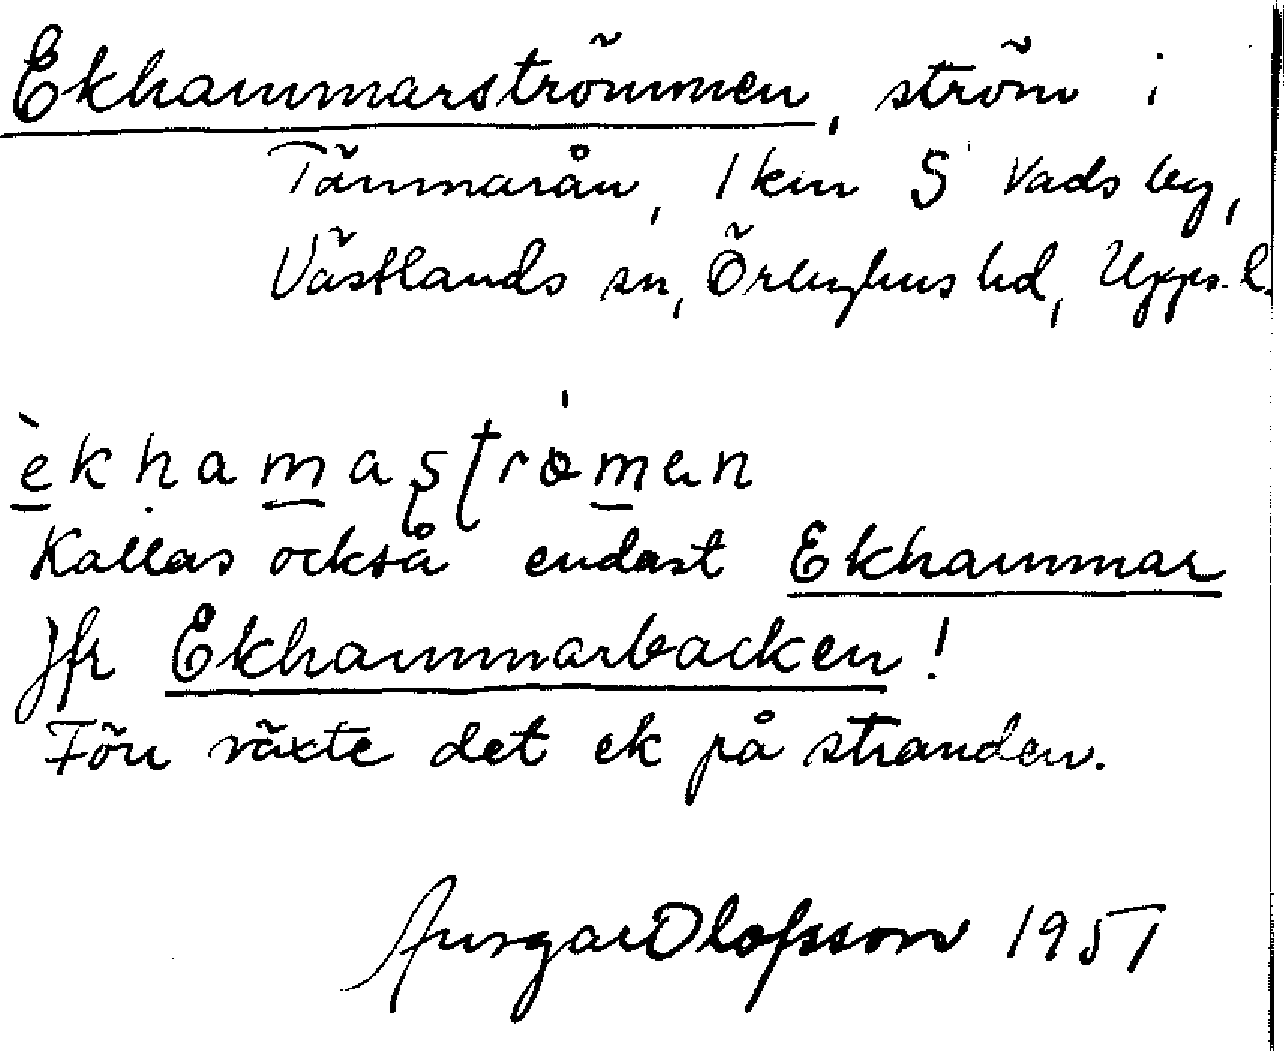 Ekhammarströmmen, ström i
Tämmarån, 1 km S Vads by,
Västlands sn, Örbyhus hd, Upps. l.
èkhamaströmen
Kallas också endast Ekhammar
Jfr Ekhammarbacken!
Förr växte det ek på stranden.
Ansgar Olofsson 1951